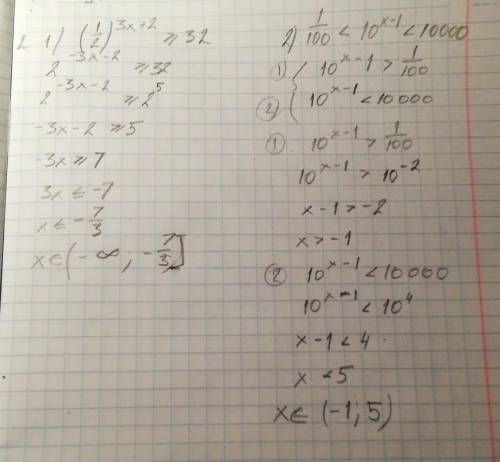 2 1) (1/2)^(3x+2) ≥ 32
2^(-3x-2) ≥ 32
2^(-3x-2) ≥ 2^5
-3x-2 ≥ 5
-3x ≥ 7
3x ≤ -7
x ≤ -7/3
x ∈ (-∞; -7/3]
2) 1/100 < 10^(x-1) < 10000
① { 10^(x-1) > 1/100
② { 10^(x-1) < 10000
① 10^(x-1) > 1/100
10^(x-1) > 10^(-2)
x-1 > -2
x > -1
② 10^(x-1) < 10000
10^(x-1) < 10^4
x-1 < 4
x < 5
x ∈ (-1; 5)